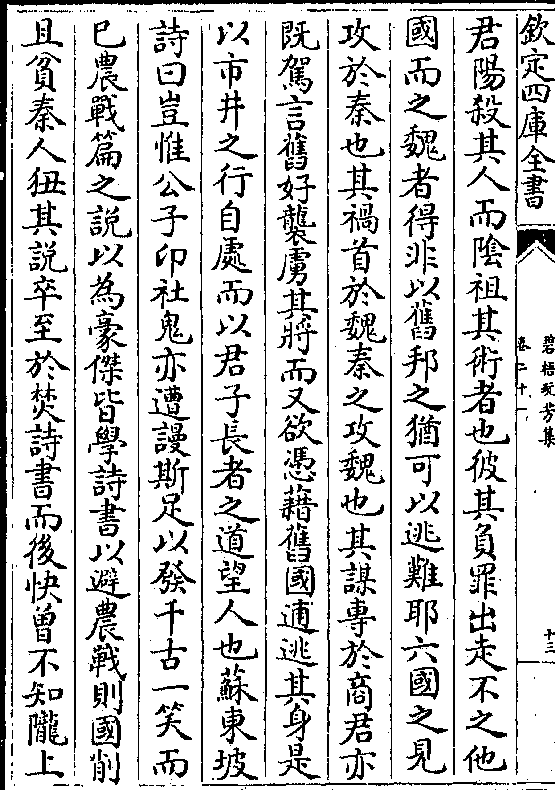 欽定四庫全書
碧梧玩芳集
卷二十一
十三
君陽殺其人而陰祖其術者也彼其負罪出走不之他
國而之魏者得非以舊邦之猶可以逃難耶六國之見
攻於秦也其禍首於魏秦之攻魏也其謀專於商君亦
既駕言舊好襲虜其將而又欲憑藉舊國逋逃其身是
以市井之行自處而以君子長者之道望人也蘇東坡
詩曰豈惟公子卬社鬼亦遭謾斯足以發千古一笑而
巳農戰篇之說以為豪傑皆學詩書以避農戰則國削
且貧秦人狃其說卒至於焚詩書而後快曾不知隴上